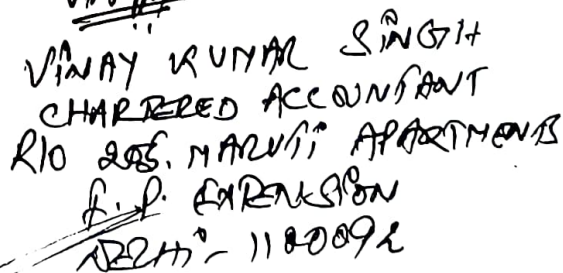 VINAY KUMAR SINGH
CHARTERED ACCOUNTANT
R/O 205, MARUTI APARTMENTS
I. P. EXTENSION
DELHI - 110092